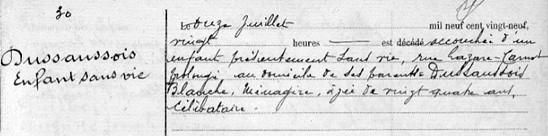 30
Dussaussois
Enfant sans vie
Le onze juillet mil neuf cent vingt-neuf,
vingt heures — est décédé accouchée d'un
enfant présentement sans vie, rue Lazare-Carnot
prolongée, au domicile de ses parents Dussaussois
Blanche, Ménagère, âgée de vingt quatre ans,
célibataire.